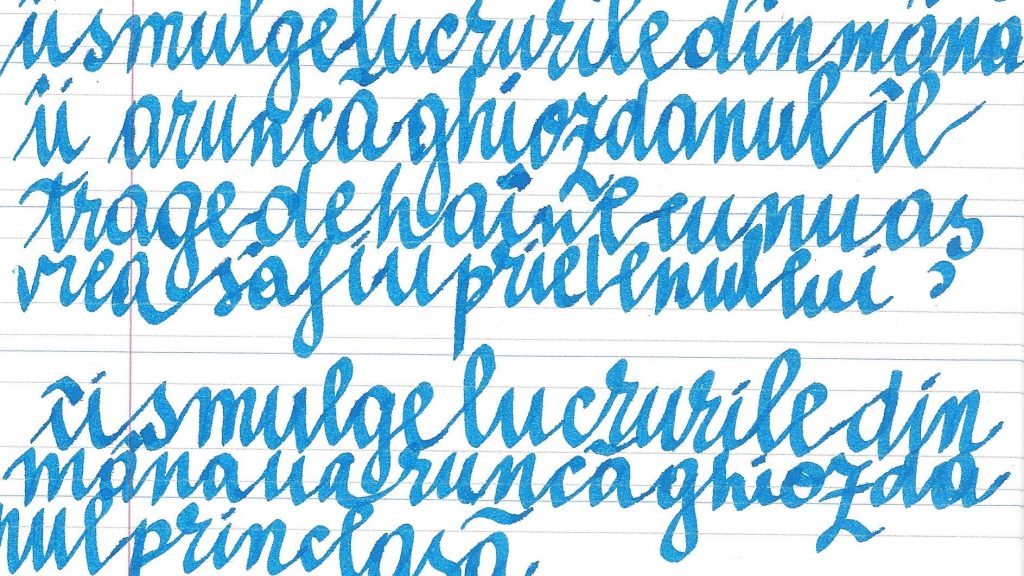 îi smulge lucrurile din mâna
îi aruncă ghiozdanul îl
trage de haine eu nu as
vrea să fiu prietenul lui
îi smulge lucrurile din
mâna îi aruncă ghiozda
nul prin clasă.